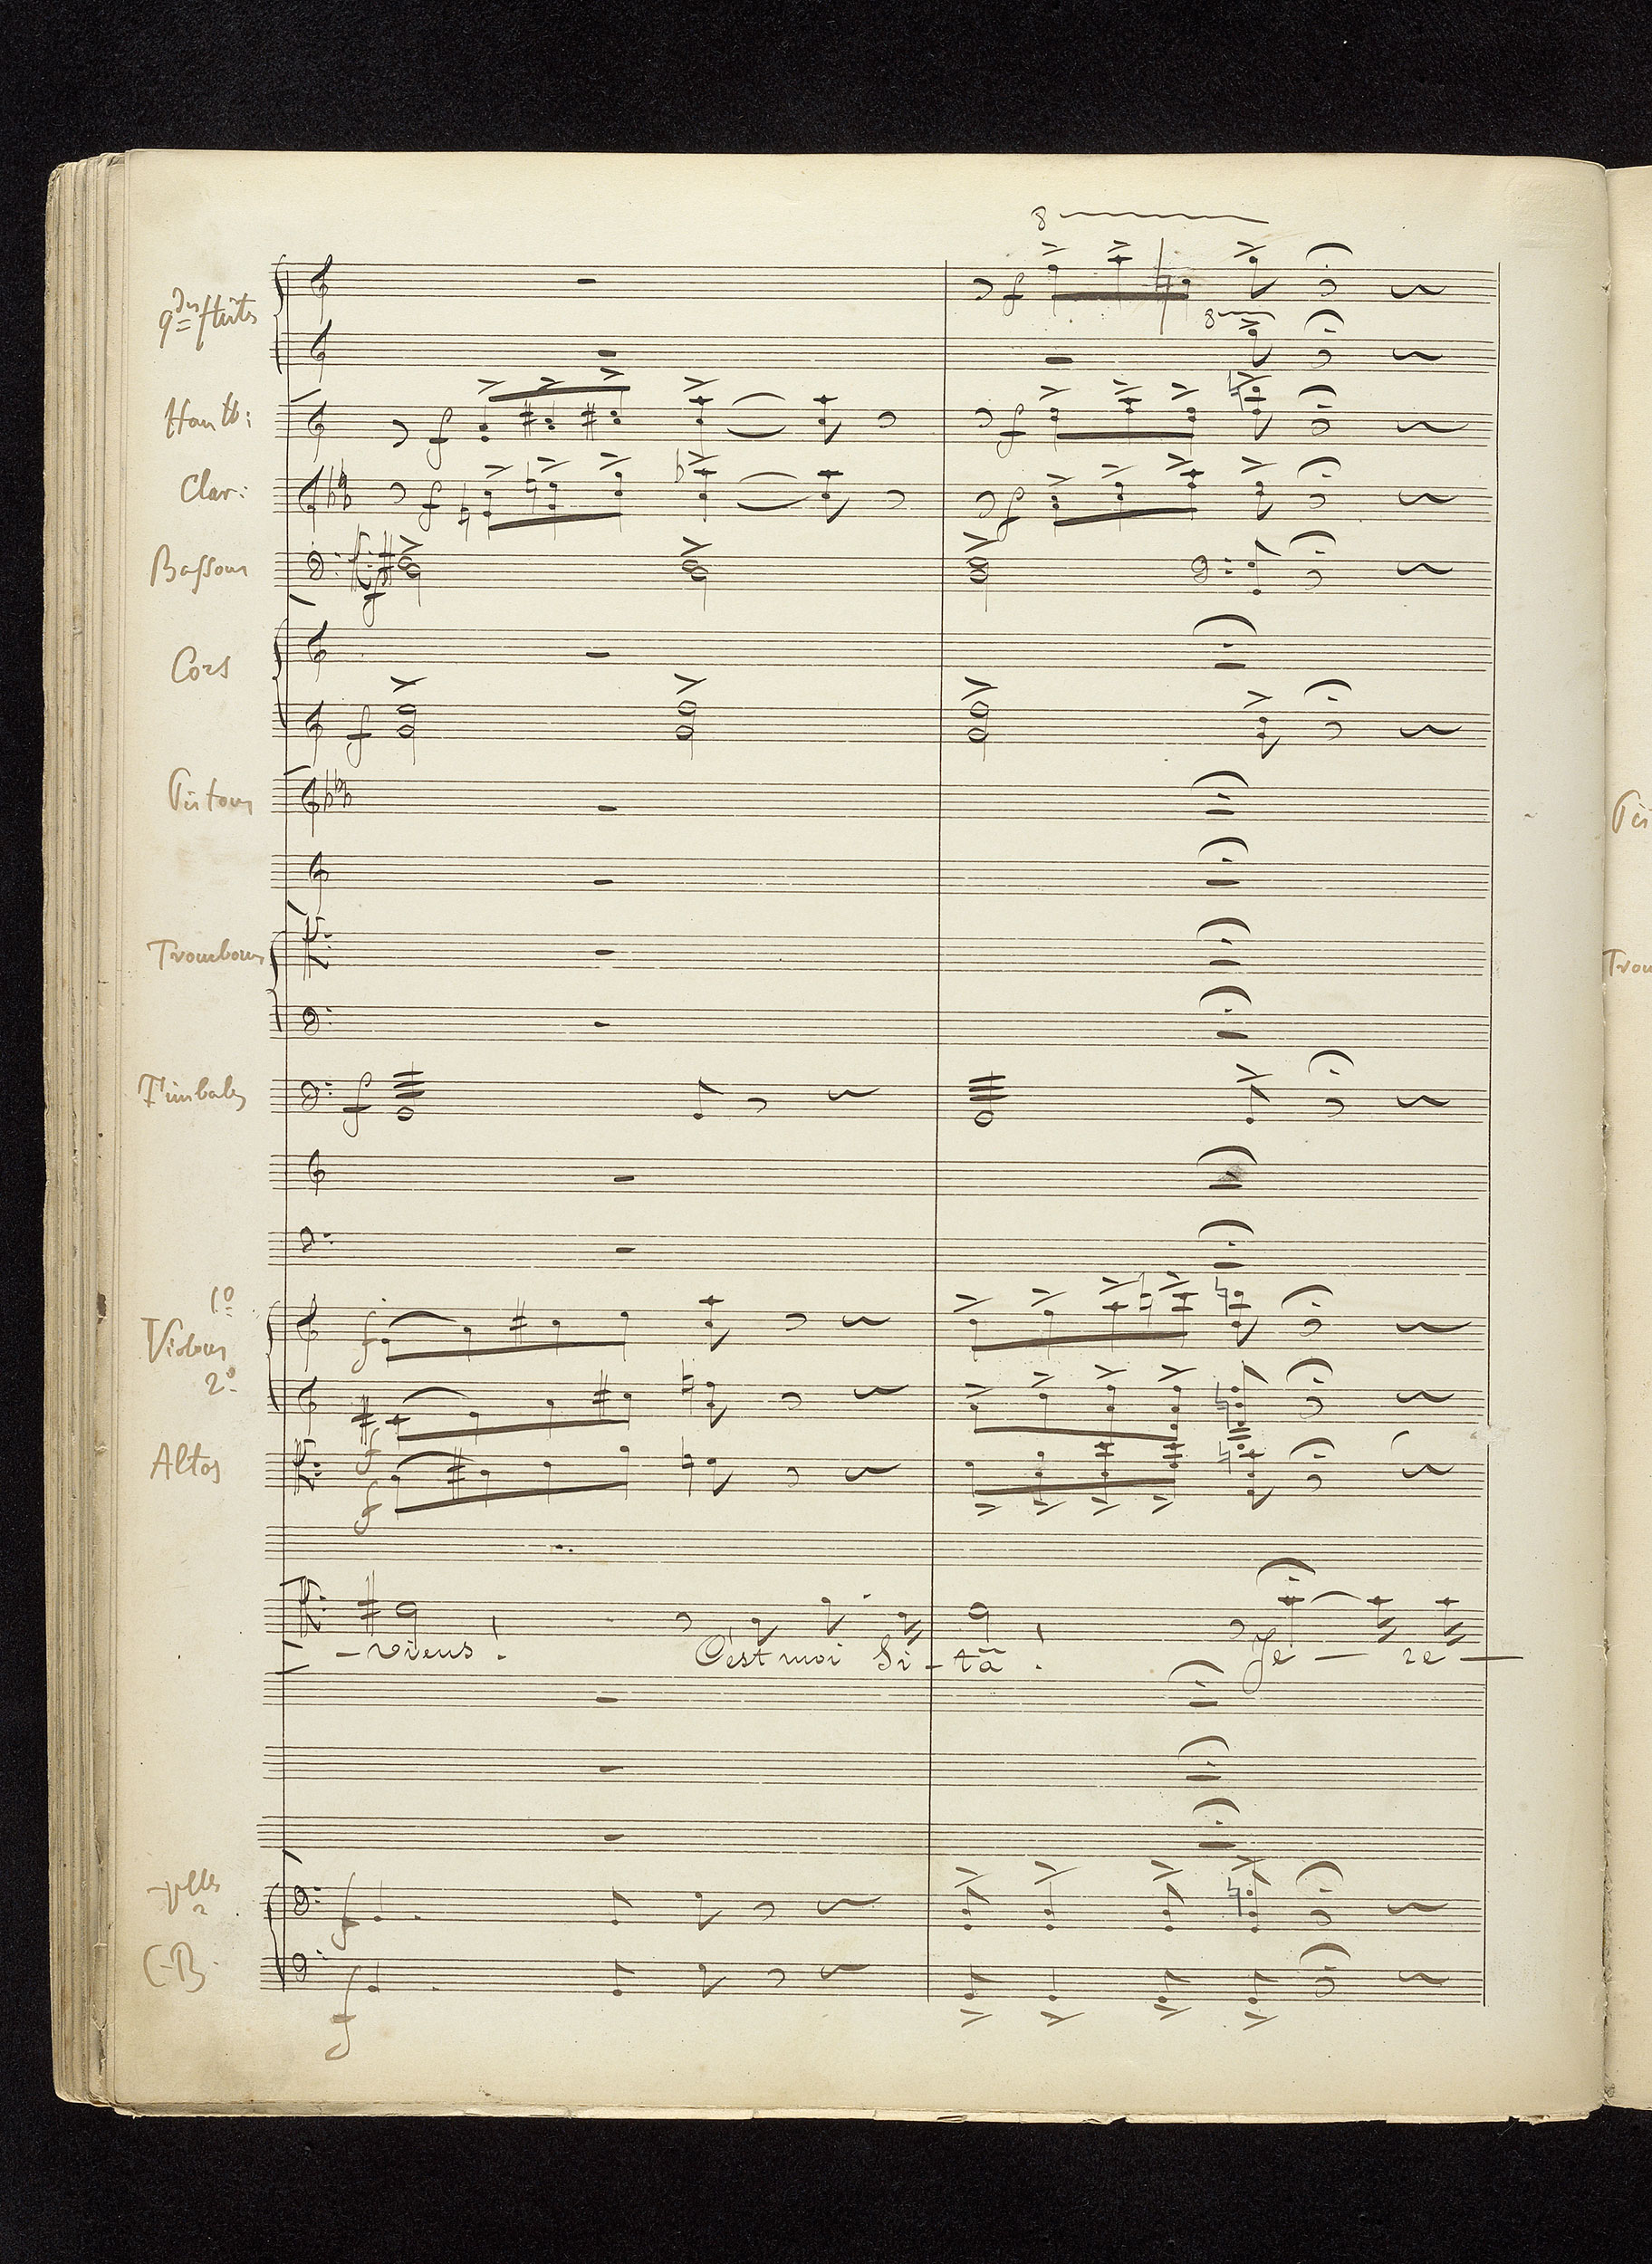 gdes flûtes
Hautb:
Clar:
Bassons
Cors
Pistons
Trombones
Timbales
1º
Violons
2º
Altos
- viens ! C'est moi Si - tâ ! Je - re -
vlles
C-B.